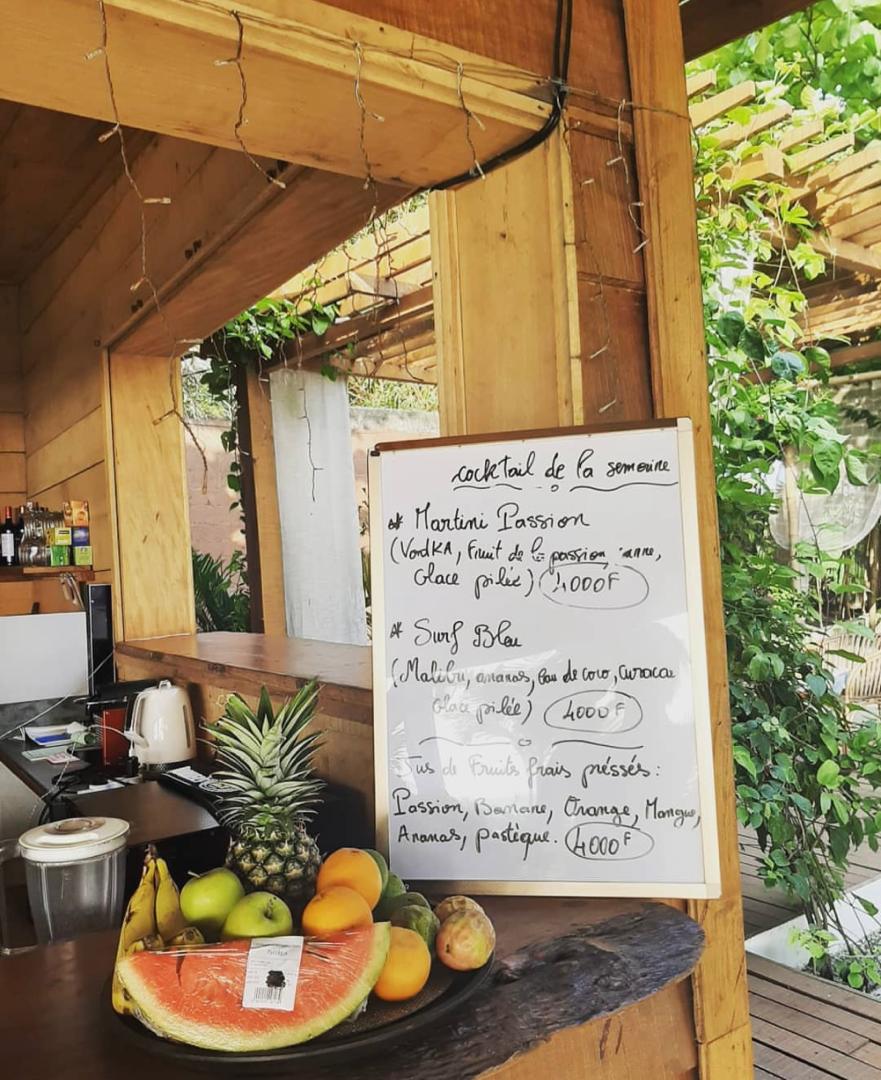 cocktail de la semaine
* Martini Passion
(Vodka, Fruit de la passion
Glace pilée) 4000F
* Surf Bleu
(Malibu, ananas, Eau de coco, Curacao
Glace pilée) 4000F
Jus de Fruits frais préssés :
Passion, Banane, Orange, Mangue,
Ananas, pastèque. 4000F